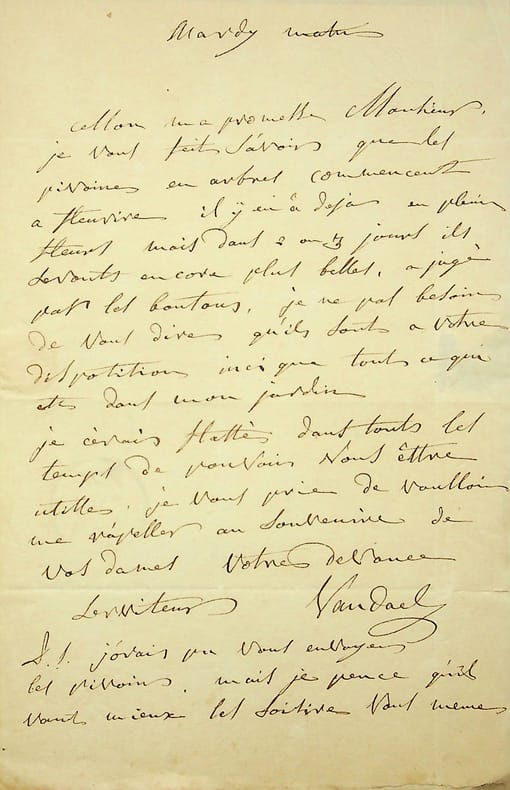 Mardy matin
cellon ma promesse Monsieur,
je vous fait savoirs que les
pivoines en arbres commencent
a fleurire il y en a deja en plein
fleurs mais dans 2 ou 3 jours ils
seronts encore plus belles, a jugè
par les boutons, je ne pas besoin
de vous dire qu'ils sonts a votre
dispotition inci que touts ce qui
ets dans mon jardin
je cèrais flattès dans touts les
temps de pouvoir vous êttre
utilles, je vous prie de voulloir
me rapeller au souvenire de
vos dames votres devouee
serviteur Vandael
P.S. j'orais pu vous envoyer
les pivoins, mais je pence qu'il
vauts mieux les voitire vous meme